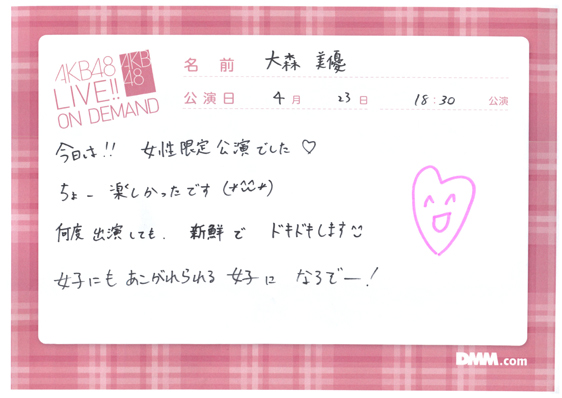 AKB48
LIVE!!
ON DEMAND
AKB
48
名 前 大森 美優
公演日 4月 23日 18:30 公演
今日は!! 女性限定公演でした♡
ちょー 楽しかったです (*^^*)
何度出演しても、新鮮で ドキドキします
女子にもあこがれられる女子に なるでー!
DMM.com